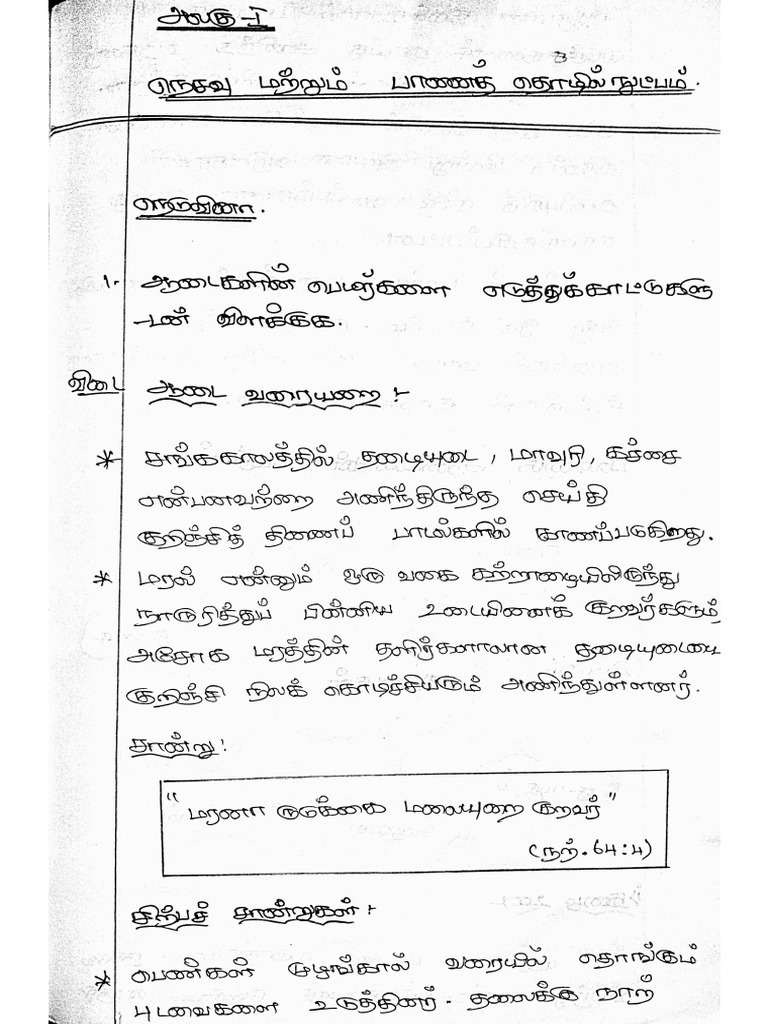 அலகு-I
நெசவு மற்றும் பானைத் தொழில் நுட்பம்.
நெடுவினா.
1. ஆடைகளின் பெயர்களை எடுத்துக்காட்டுகளு
-டன் விளக்குக.
விடை ஆடை வரையறை :-
* சங்ககாலத்தில் தழையுடை, மரவுரி, கச்சை
என்பனவற்றை அணிந்திருந்த செய்தி
குறிஞ்சித் திணைப் பாடல்களில் காணப்படுகிறது.
* மரல் என்னும் ஒரு வகை கற்றாழையிலிருந்து
நாருரித்துப் பின்னிய உடையினைக் குறவர்களும்
அசோக மரத்தின் தளிர்களாலான தழையுடையை
குறிஞ்சி நிலக் கொடிச்சியரும் அணிந்துள்ளனர்.
சான்று:
"மரனா ருடுக்கை மலையுறை குறவர்"
(நற். 64:4)
சிற்பச் சான்றுகள் :-
* பெண்கள் முழங்கால் வரையில் தொங்கும்
புடவைகளை உடுத்தினர். தலைக்கு நாற்